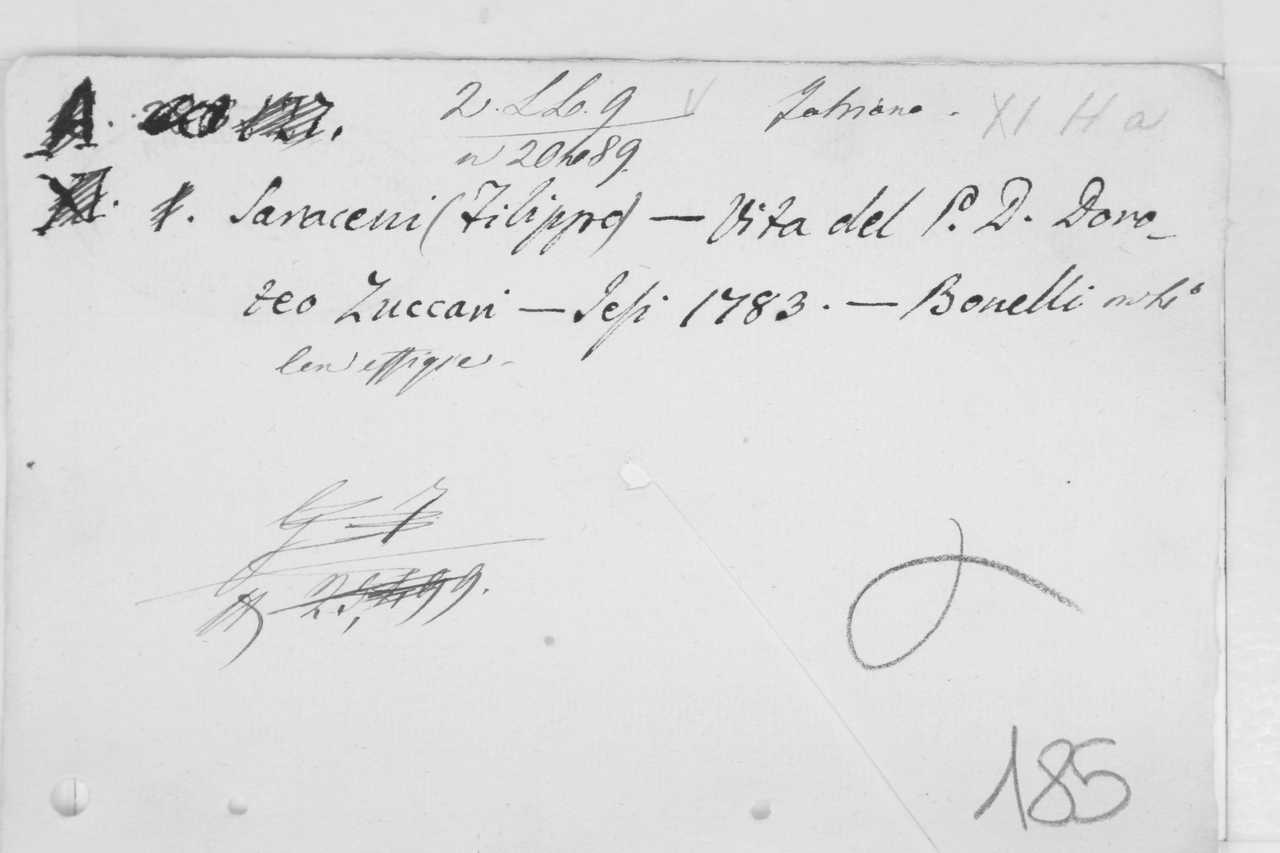 2. LL. 9 Fabriano. XI H a
n 20489.
Saraceni (Filippo) — Vita del P. D. Doro-
teo Zuccari — Jesi 1783. — Bonelli
con effigie.
185